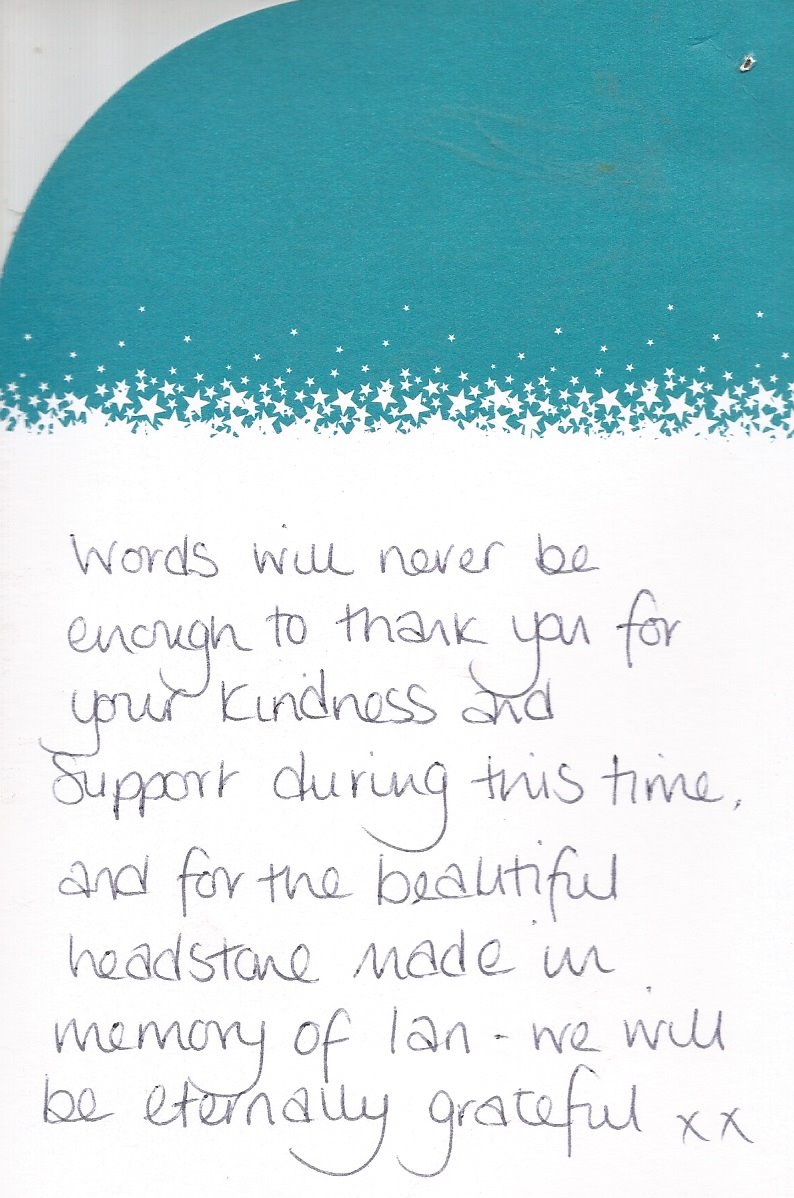 Words will never be
enough to thank you for
your kindness and
support during this time,
and for the beautiful
headstone made in
memory of Ian - we will
be eternally grateful xx